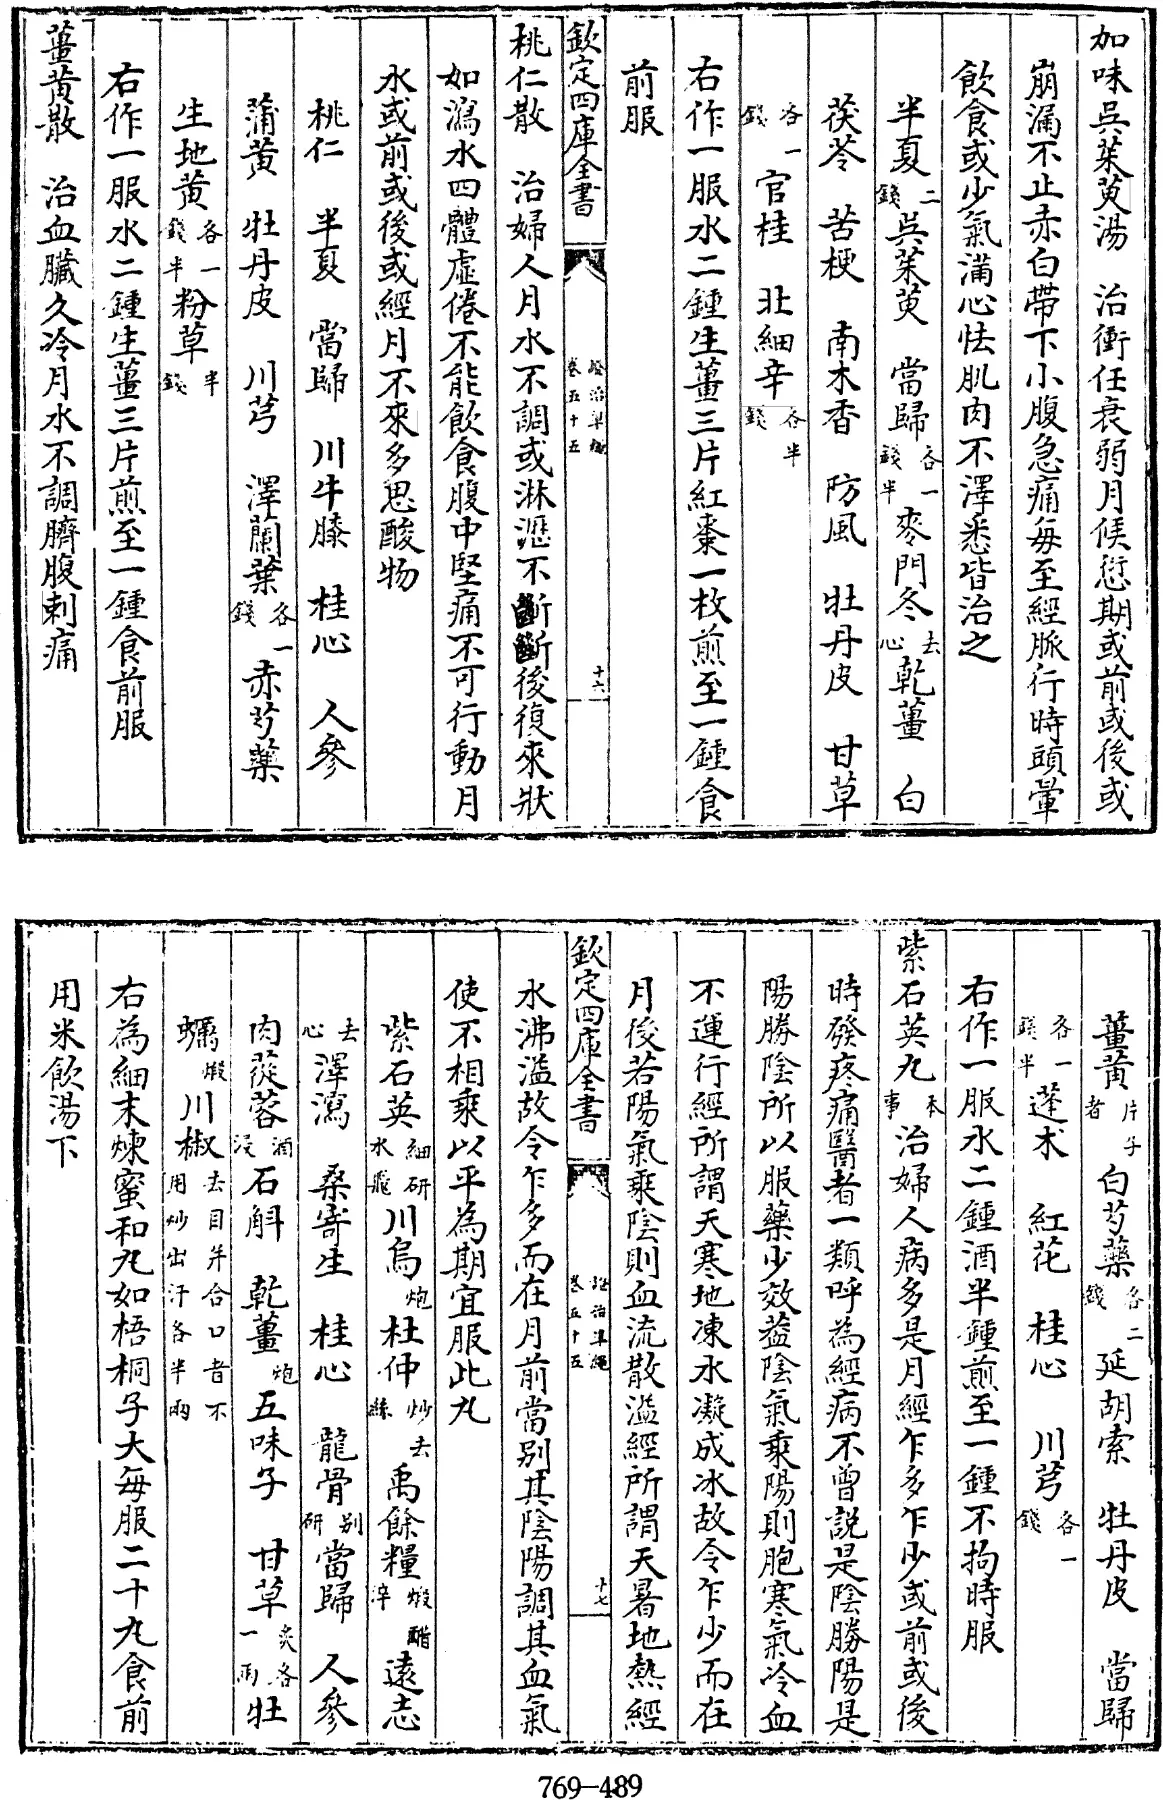 加味吳茱萸湯　治衝任衰弱月候愆期或前或後或
崩漏不止赤白帶下小腹急痛每至經脈行時頭暈
飲食或少氣滿心怯肌肉不澤悉皆治之
半夏二錢吳茱萸　當歸各一錢半麥門冬去心乾薑　白
茯苓　苦梗　南木香　防風　牡丹皮　甘草
各一錢官桂　北細辛各半錢
右作一服水二鍾生薑三片紅棗一枚煎至一鍾食
前服
欽定四庫全書　證治準繩卷五十五　十六
桃仁散　治婦人月水不調或淋瀝不斷斷後復來狀
如瀉水四體虛倦不能飲食腹中堅痛不可行動月
水或前或後或經月不來多思酸物
桃仁　半夏　當歸　川牛膝　桂心　人參
蒲黃　牡丹皮　川芎　澤蘭葉各一錢赤芍藥
生地黃各一錢半粉草半錢
右作一服水二鍾生薑三片煎至一鍾食前服
薑黃散　治血臟久冷月水不調臍腹刺痛
薑黃片子者　白芍藥各二錢　延胡索　牡丹皮　當歸
各一錢半蓬朮　紅花　桂心　川芎各一錢
右作一服水二鍾酒半鍾煎至一鍾不拘時服
紫石英丸本事治婦人病多是月經乍多乍少或前或後
時發疼痛醫者一類呼為經病不曾說是陰勝陽是
陽勝陰所以服藥少效葢陰氣乘陽則胞寒氣冷血
不運行經所謂天寒地凍水凝成冰故令乍少而在
月後若陽氣乘陰則血流散溢經所謂天暑地熱經
欽定四庫全書　證治準繩卷五十五　十七
水沸溢故令乍多而在月前當別其陰陽調其血氣
使不相乘以平為期宜服此丸
紫石英細研水飛川烏炮杜仲炒去絲禹餘糧煅醋淬遠志
去心澤瀉　桑寄生　桂心　龍骨別研當歸　人參
肉蓯蓉酒浸石斛　乾薑炮五味子　甘草炙各一兩牡
蠣煅川椒去目并合口者不用炒出汗各半兩
右為細末煉蜜和丸如梧桐子大每服二十丸食前
用米飲湯下
769-489